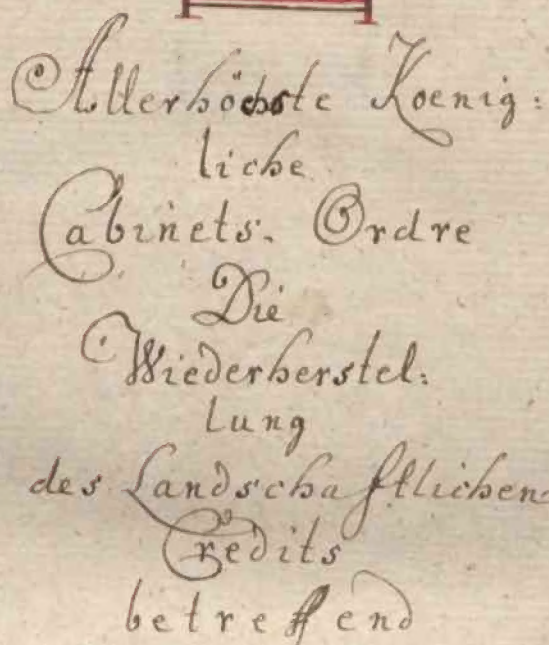 Allerhöchste Koenig:
liche
Cabinets. Ordre
Die
Wiederherstel:
lung
des Landschafftlichen
Credits
betreffend